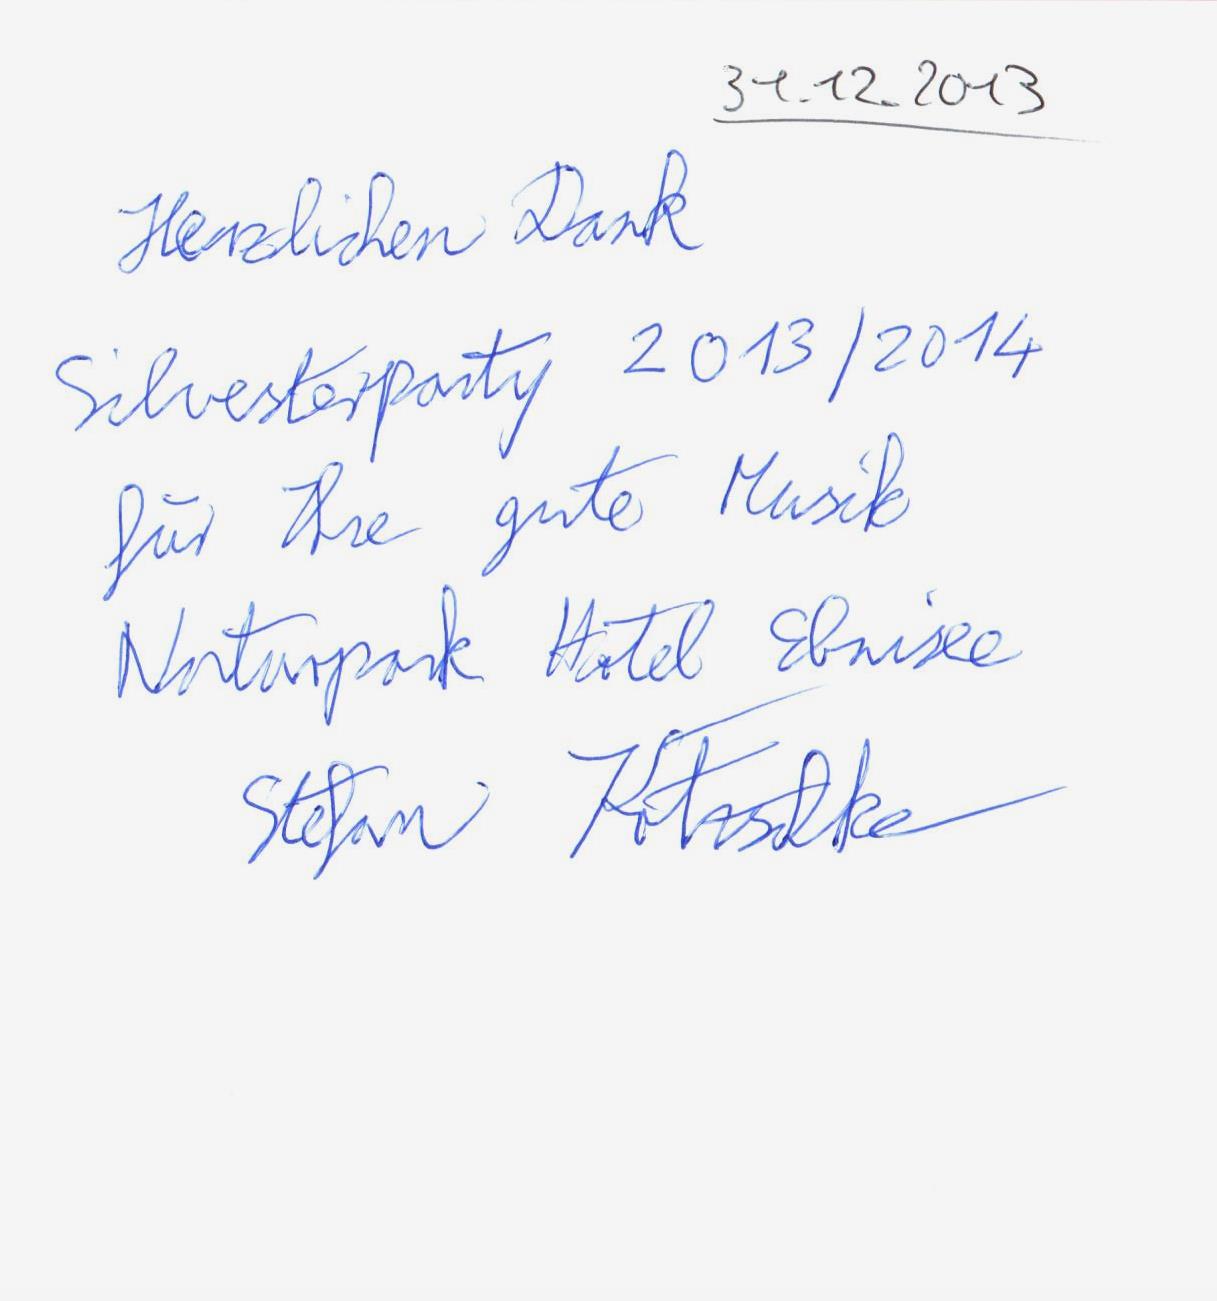 31.12.2013
Herzlichen Dank
Silvesterparty 2013/2014
für Ihre gute Musik
Naturpark Hotel Ebnisee
Stefan